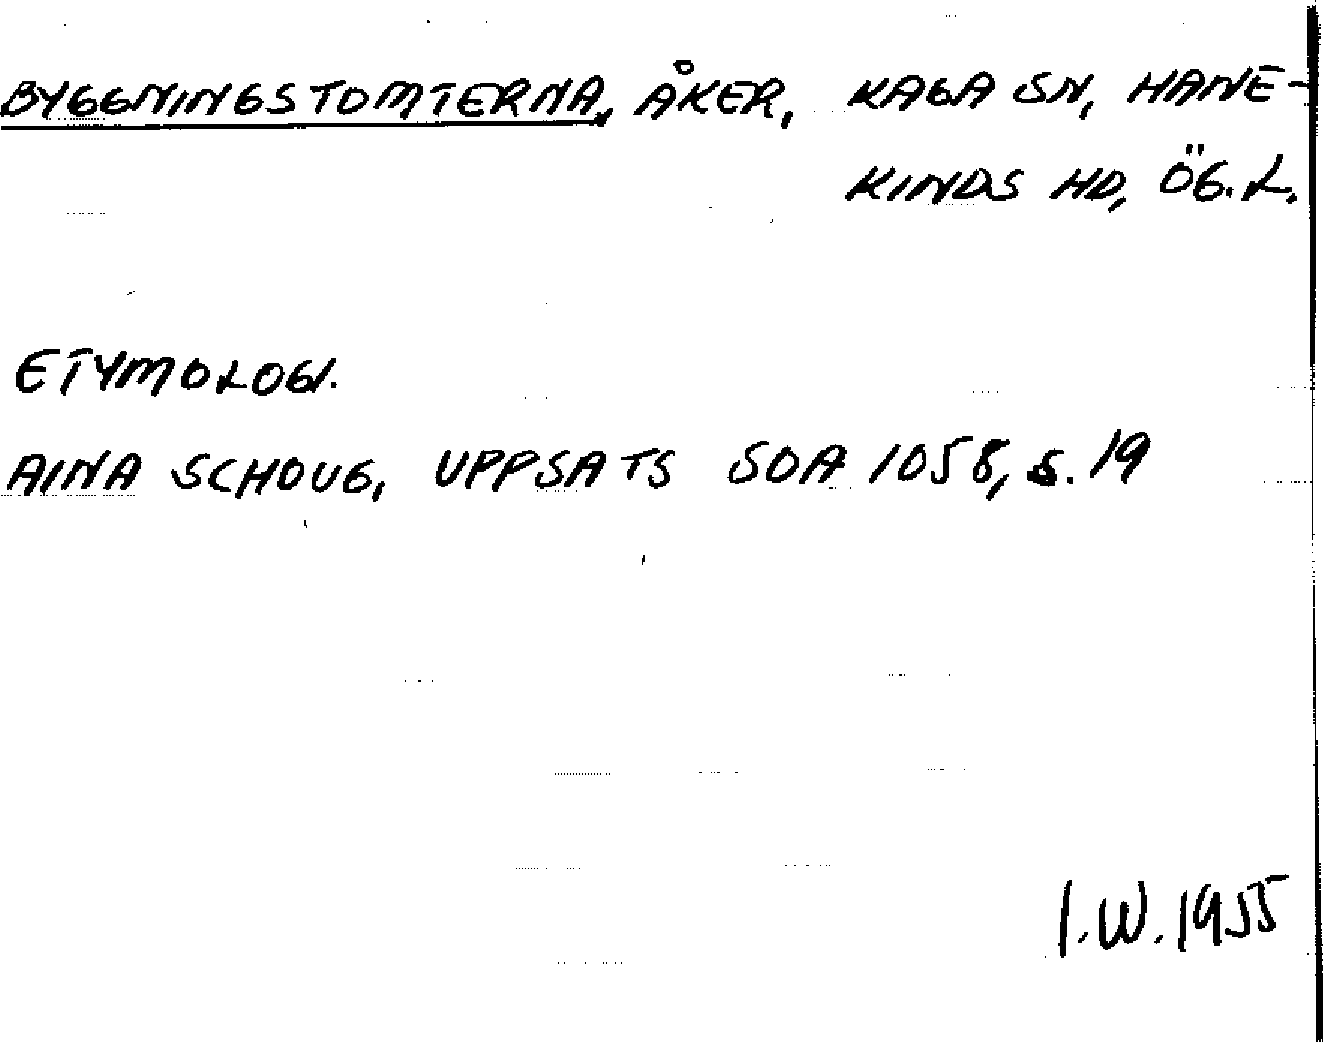 BYGGNINGSTOMTERNA, ÅKER, KAGA SN, HANE-
KINDS HD, ÖG.L.
ETYMOLOGI.
AINA SCHOUG, UPPSATS SOA 1058, S. 19
I.W. 1955